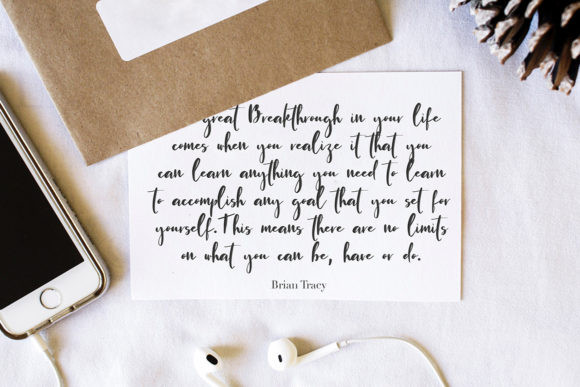 great Breakthrough in your life
comes when you realize it that you
can learn anything you need to learn
to accomplish any goal that you set for
yourself.This means there are no limits
on what you can be, have or do.
Brian Tracy